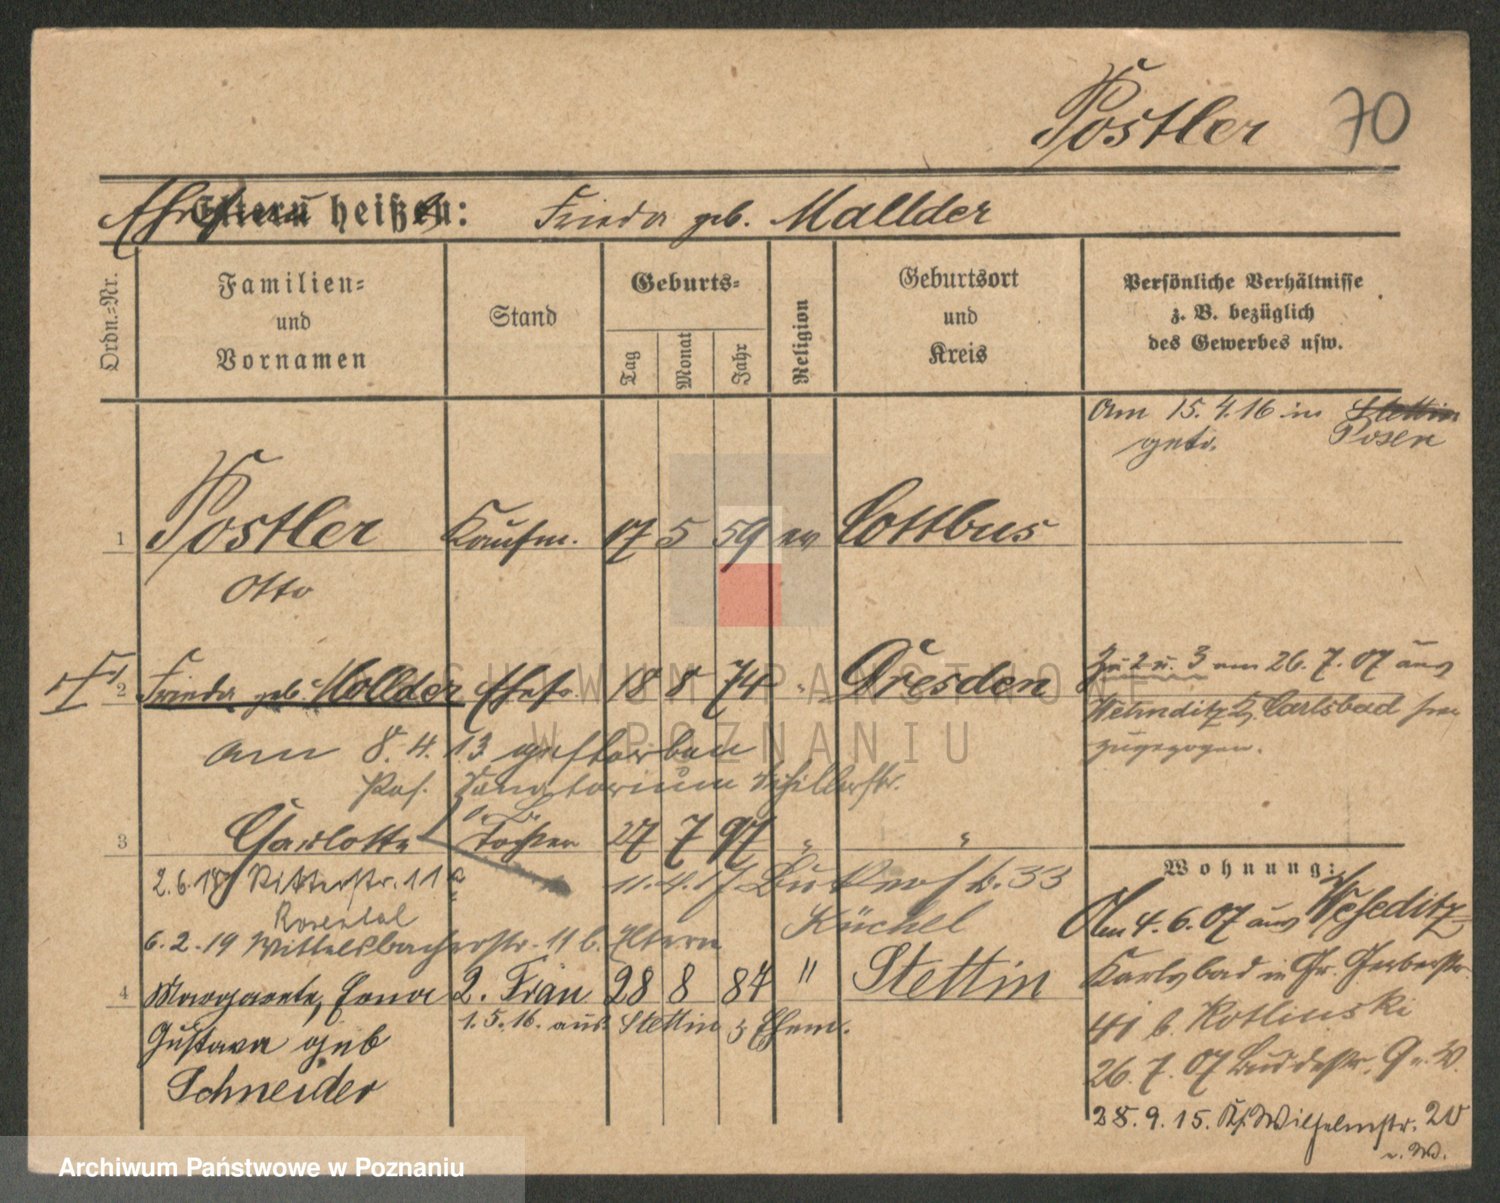 Postler 70
Eltern heißen: Frieda geb. Mallder
Ordn.=Nr.
Familien=
und
Vornamen
Stand
Geburts=
Tag
Monat
Jahr
Religion
Geburtsort
und
Kreis
Persönliche Verhältnisse
z. B. bezüglich
des Gewerbes usw.
Am 15.4.16 in Stettin
Posen
getr.
1 Postler Kaufm. 17 5 59 ev Cottbus
Otto
2 Frieda geb. Mollder Ehefr. 18 8 74 " Dresden
Zu 2 u. 3 am 26.7.07 aus
Carlsbad
zugezogen.
am 8.4.13 gestorben
Sanatorium
3 Charlotte Tochter 27 7 97 " "
2.6.18 Ritterstr. 11a
11.4.17 33
Rosental Küchel
6.2.19 Wittelsbacherstr. 11 b. Eltern
4 Margarete, Erna 2. Frau 28 8 84 " Stettin
1.5.16. aus Stettin z Ehem.
Gustava geb
Schneider
Wohnung:
Am 4.6.07 aus
Karlsbad in Gr. Gerberstr.
41 b. Kotlinski
26.7.07
28.9.15. Wilhelmstr. 20
ARCHIWUM PAŃSTWOWE
W POZNANIU
Archiwum Państwowe w Poznaniu